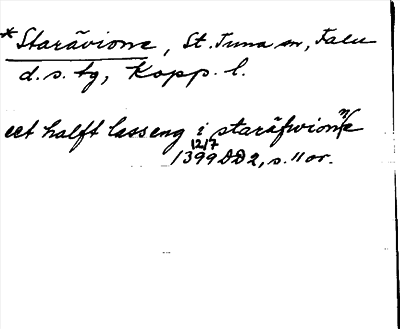 *Starävione, St. Tuna sn, Falu
d.s. tg, Kopp. l.
eet halft lasseng i staräfwione
n/
12/7
1399 DD2, s. 11 or.